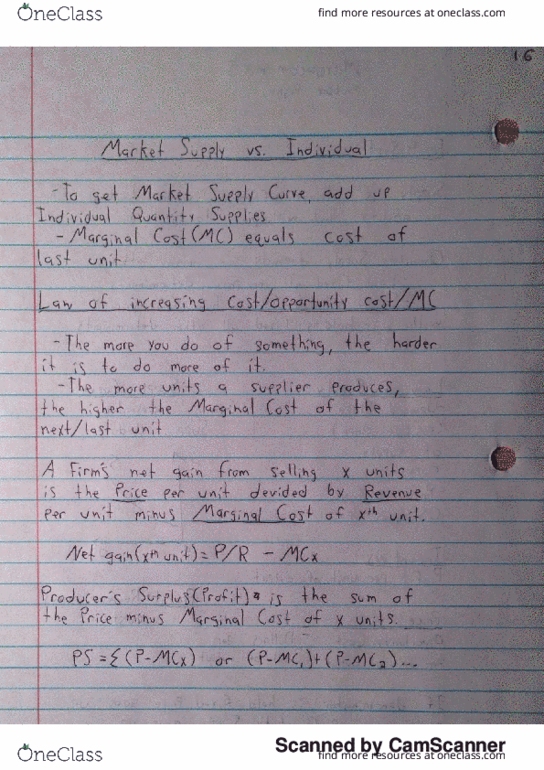 OneClass find more resources at oneclass.com
16
Market Supply vs. Individual
-To get Market Supply Curve, add up
Individual Quantity Supplies
- Marginal Cost (MC) equals cost of
last unit
Law of increasing Cost/opportunity cost/MC
-The more you do of something, the harder
it is to do more of it.
-The more units a supplier produces,
the higher the Marginal Cost of the
next/last unit
A Firm's net gain from selling x units
is the Price per unit devided by Revenue
per unit minus Marginal Cost of xth unit.
Net gain(xth unit) = P/R - MCx
Producer's Surplus (Profit) is the sum of
the Price minus Marginal Cost of x units.
PS = Σ (P-MCx) or (P-MC1)+(P-MC2)...
Scanned by CamScanner
OneClass find more resources at oneclass.com